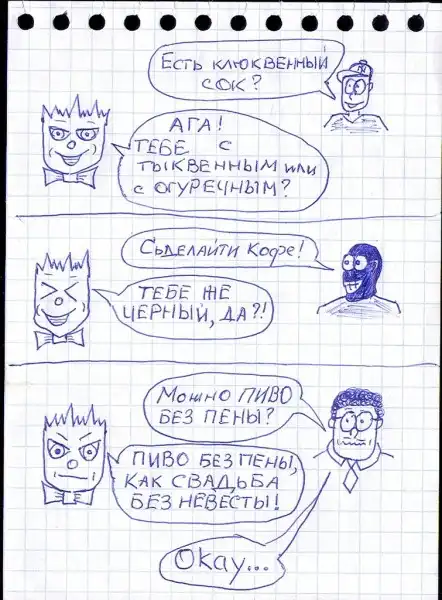 Есть клюквенный
сок?
Ага!
Тебе с
тыквенным или
с огуречным?
Сьделайти кофе!
Тебе же
черный, да?!
Можно пиво
без пены?
Пиво без пены,
как свадьба
без невесты!
Okay...